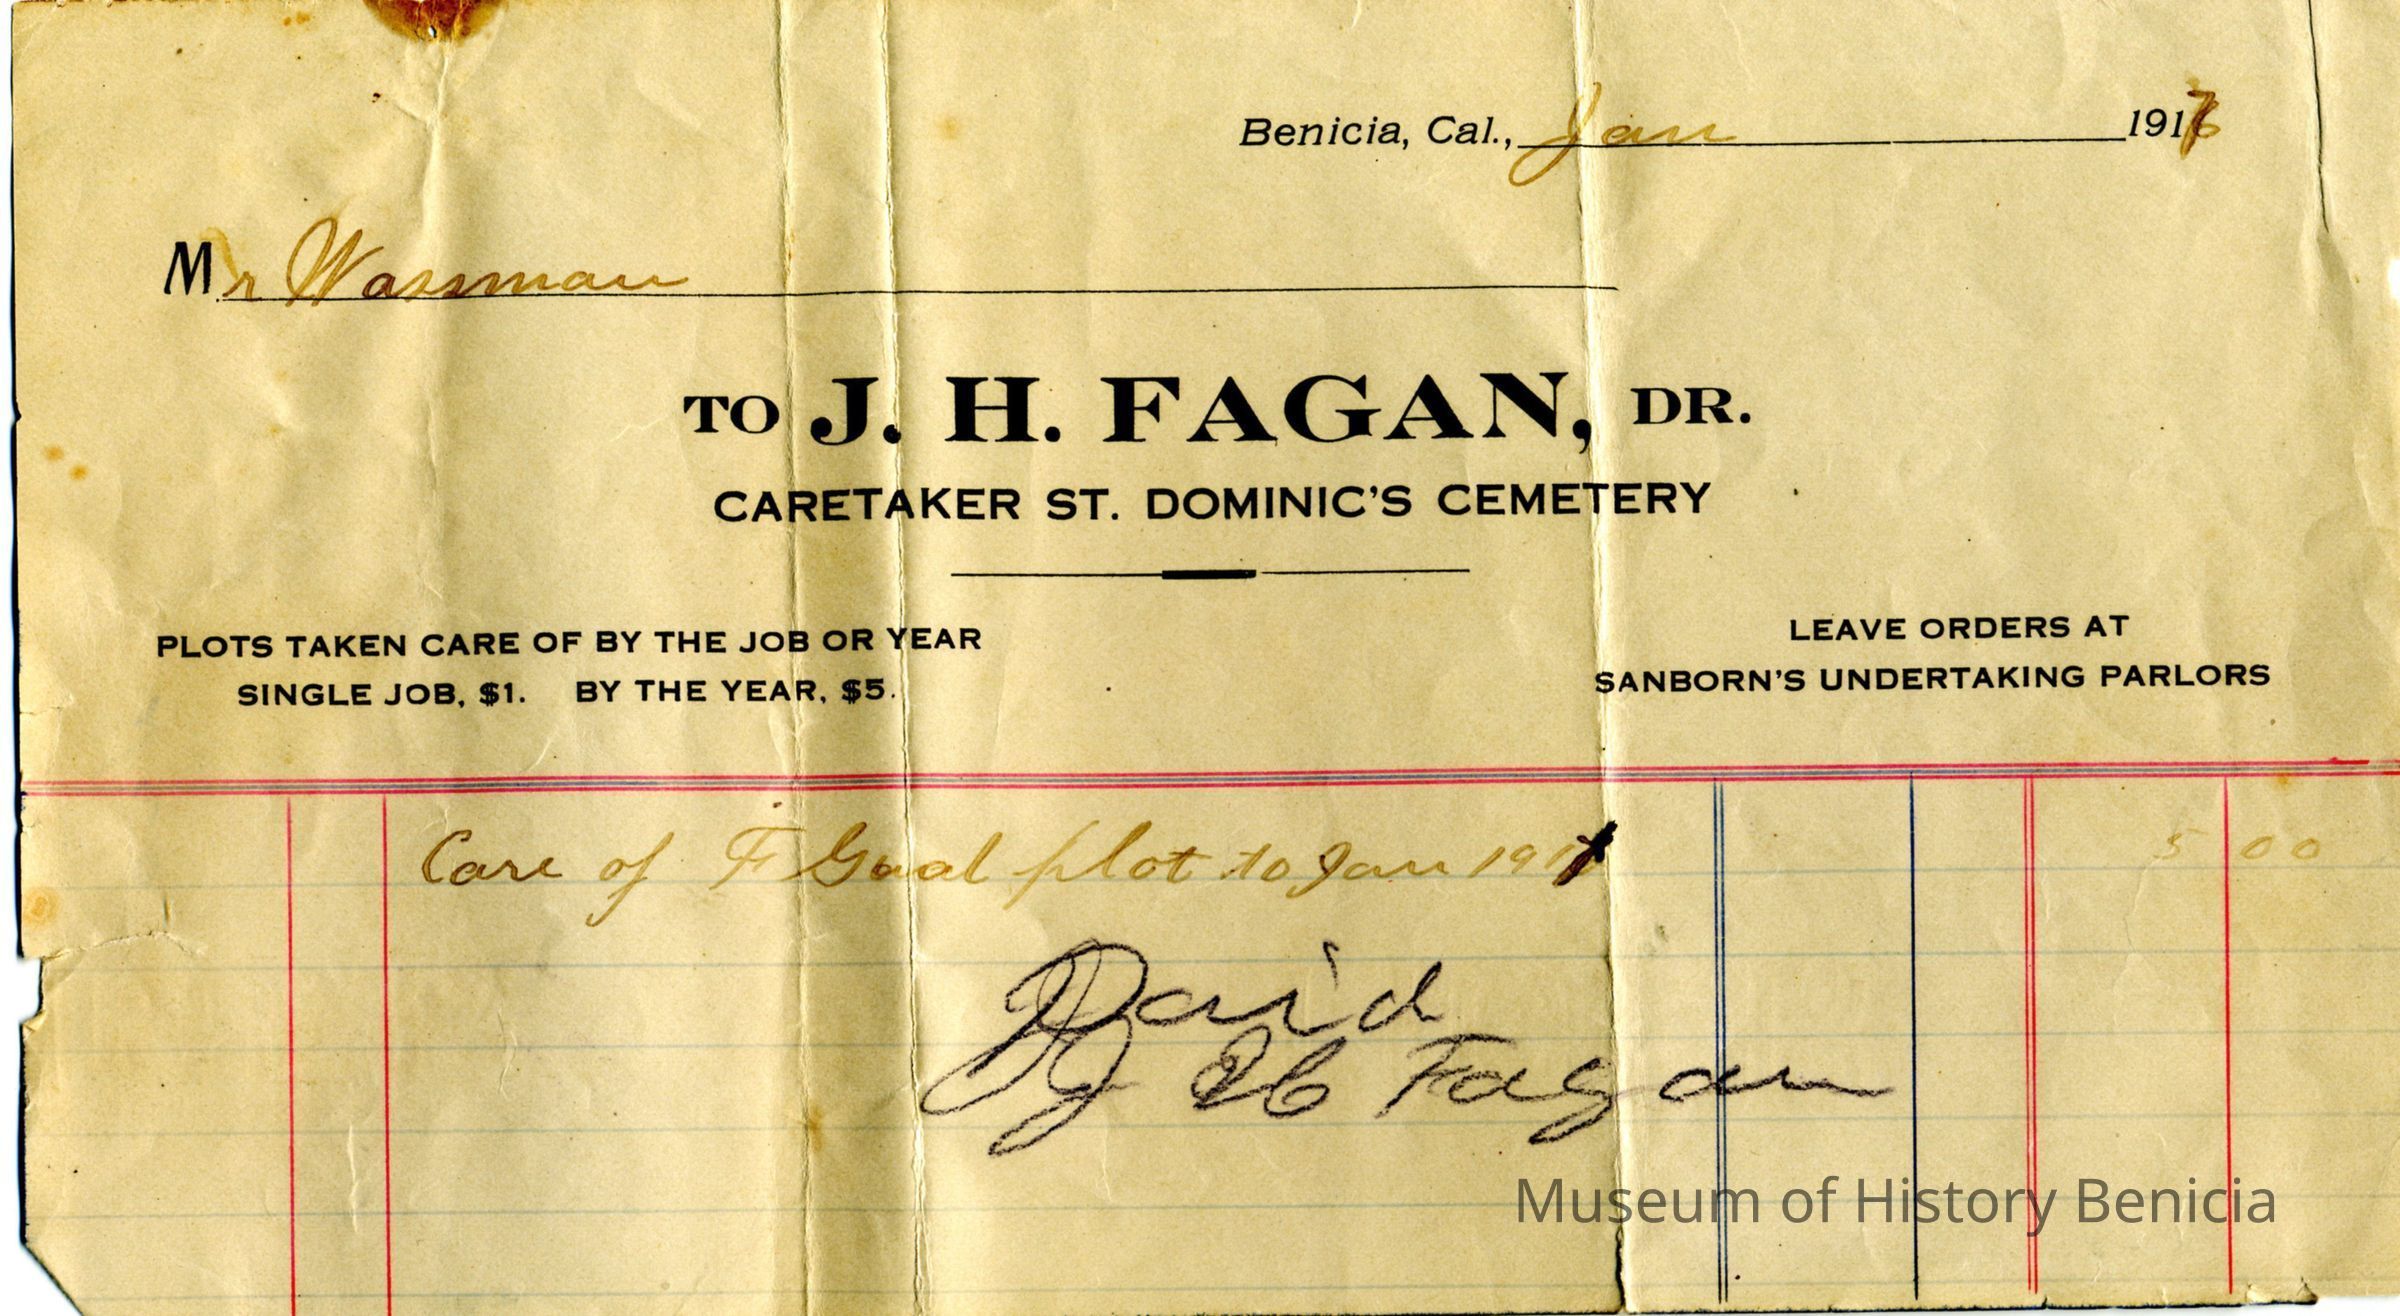 Benicia, Cal., Jan 191
Mr Wassman
TO J. H. FAGAN, DR.
CARETAKER ST. DOMINIC'S CEMETERY
PLOTS TAKEN CARE OF BY THE JOB OR YEAR
SINGLE JOB, $1. BY THE YEAR, $5.
LEAVE ORDERS AT
SANBORN'S UNDERTAKING PARLORS
Care of F Gaal plot to Jan 191 5 00
Paid
J H Fagan
Museum of History Benicia